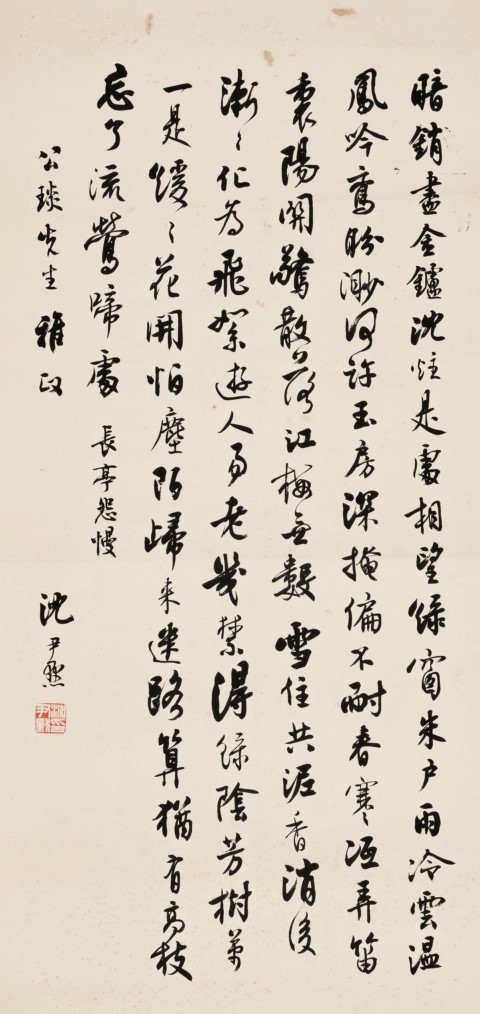 暗銷盡金鑪沈炷是處相望綠窗朱戶雨冷雲溫
鳳吟鸞盼渺何許玉房深掩偏不耐春寒冱弄笛
裏陽關驚散落江梅無數雪住共泥香消後
漸漸化為飛絮遊人易老幾禁得綠陰芳樹萬
一是煖煖花開怕塵陌歸來迷路算猶有高枝
忘了流鶯啼處 長亭怨慢
公琰先生雅政
沈尹默